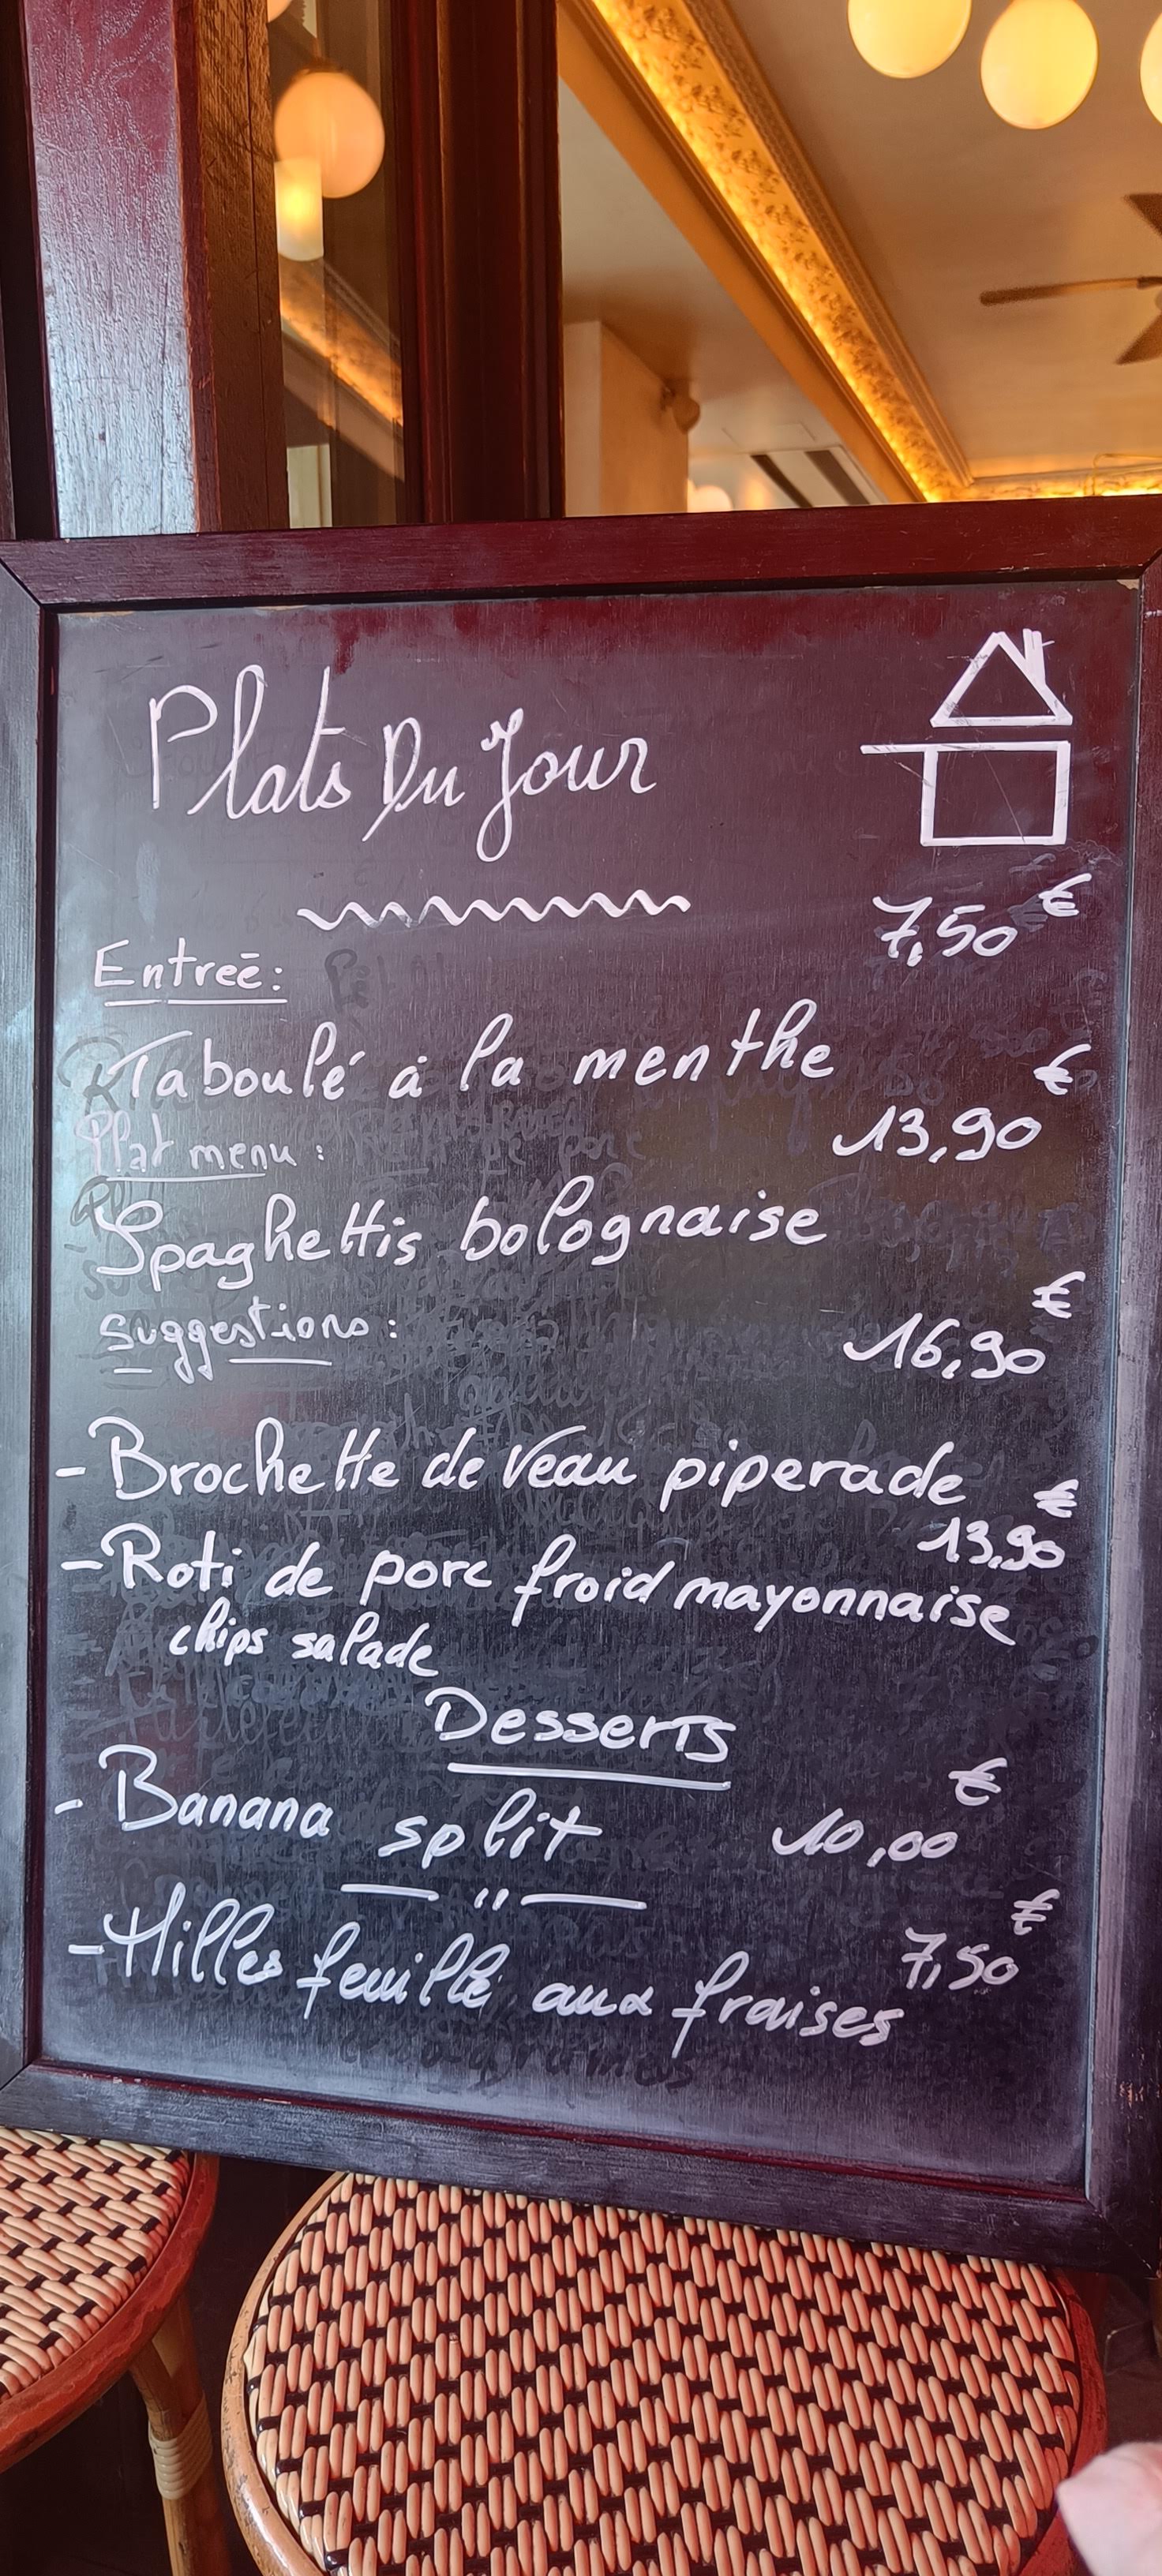 Plats Du Jour
7,50 €
Entreé:
Taboulé à la menthe
13,90 €
Plat menu :
Spaghettis bolognaise
Suggestions :
16,90 €
- Brochette de Veau piperade
13,90 €
- Roti de porc froid mayonnaise
chips salade
Desserts
- Banana split 10,00 €
- Milles feuille aux fraises 7,50 €